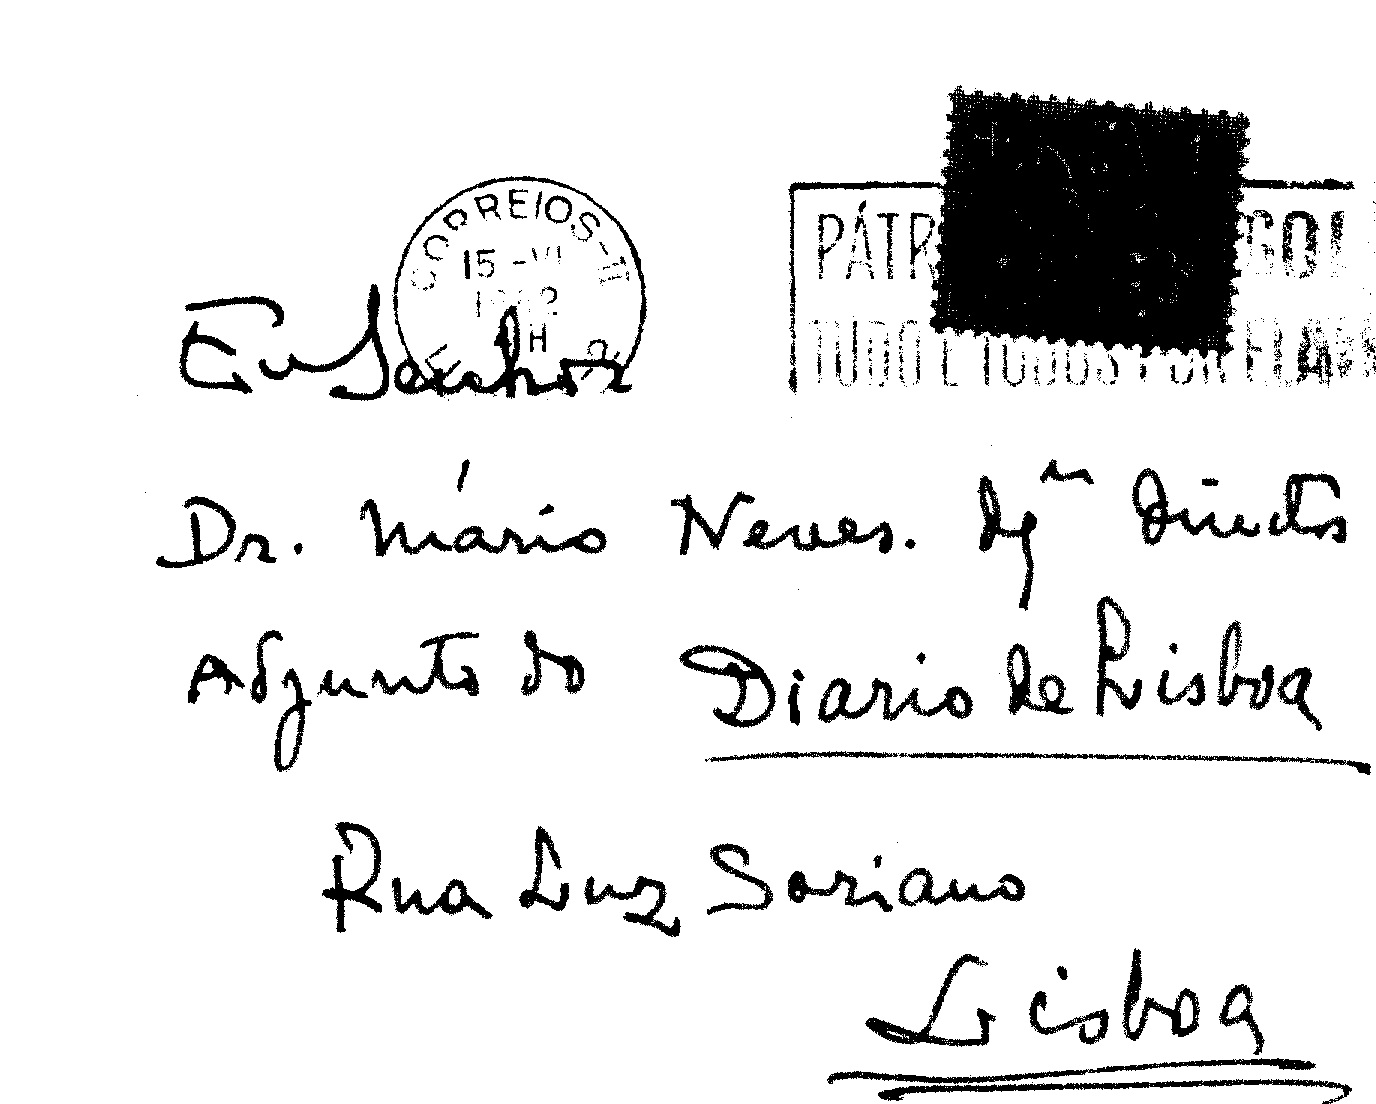 CORREIOS-
15 -VI
H
PÁTR GOL
TUDO E TODOS POR ELA
Ex Senhor
Dr. Mário Neves. Dgᵐ director
Adjunto do Diario de Lisboa
Rua Luz Soriano
Lisboa